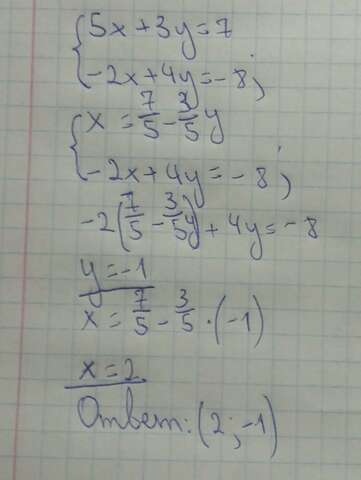 5x+3y=7
-2x+4y=-8;
x = 7/5 - 3/5 y
-2x+4y=-8;
-2(7/5 - 3/5 y)+4y=-8
y=-1
x = 7/5 - 3/5 · (-1)
x=2
Ответ: (2;-1)